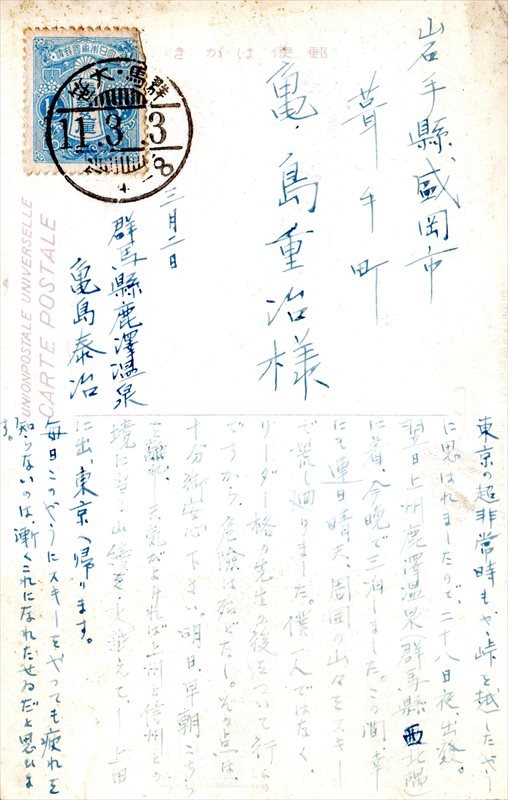 郵便はがき
群馬・大
11.3.3
岩手縣、盛岡市
茸手町
亀島重治様
三月二日
群馬縣鹿澤温泉
亀島泰治
UNIONPOSTALE UNIVERSELLE
CARTE POSTALE
東京の超非常時もや、峠を越したやう
に思はれましたので、二十八日夜出發。
翌日上州鹿澤温泉(群馬縣西北隅)
に着、今晩で三泊しました。この間、幸
にも連日晴天、周囲の山々をスキー
で荒し廻りました。僕一人ではなく、
リーダー格の先生の後をついて行くの
ですから、危険は殆どなし。その点は
十分御安心下さい。明日、早朝こゝち
を離れ、天気がよければ上州と信州との
境に当る山 を え、 上田
に出、東京へ帰ります。
毎日このやうにスキーをやつても疲れを
知らないのは、漸くこれになれたせゐだと思ひま
す。